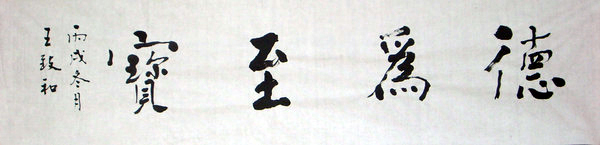 德為至寶
丙戌冬月
王致和